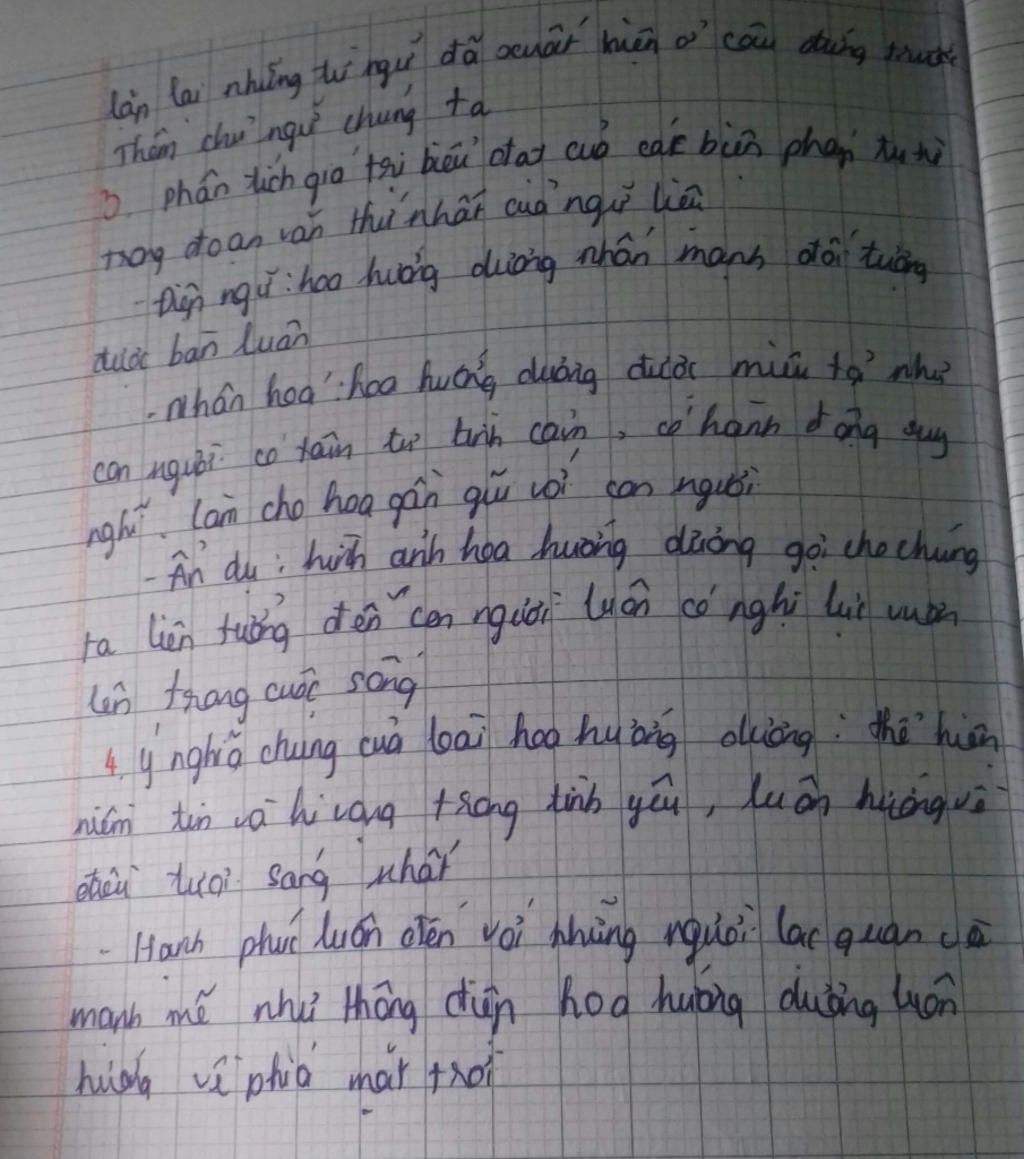 lặp lại những từ ngữ đã xuất hiện ở câu đứng trước
Thêm chủ ngữ chúng ta
3. phân tích giá trị biểu đạt của các biện pháp tu từ
trong đoạn văn thứ nhất của ngữ liệu
- Điệp ngữ: hoa hướng dương nhấn mạnh đối tượng
được bàn luận
- nhân hoá: hoa hướng dương được miêu tả như
con người có tâm tư tình cảm, có hành động suy
nghĩ. làm cho hoa gần gũi với con người
- Ẩn dụ: hình ảnh hoa hướng dương gợi cho chúng
ta liên tưởng đến con người luôn có nghị lực vươn
lên trong cuộc sống
4. ý nghĩa chung của loài hoa hướng dương: thể hiện
niềm tin và hi vọng trong tình yêu, luôn hướng về
điều tươi sáng nhất
- Hạnh phúc luôn đến với những người lạc quan và
mạnh mẽ như thông điệp hoa hướng dương luôn
hướng về phía mặt trời